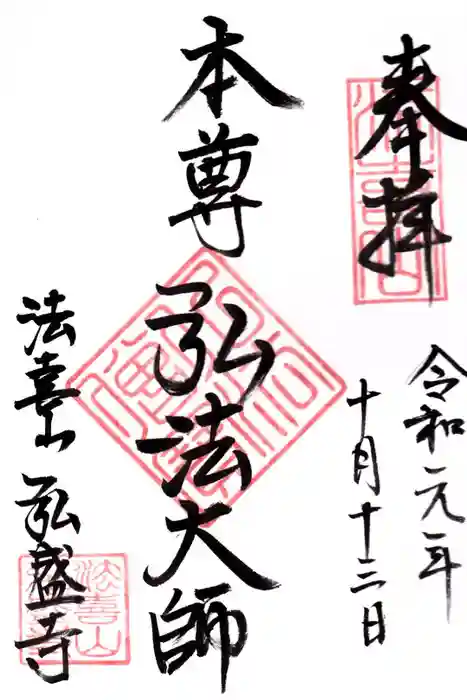 奉拝
令和元年
十月十三日
本尊 弘法大師
法喜山 弘盛寺
法喜山